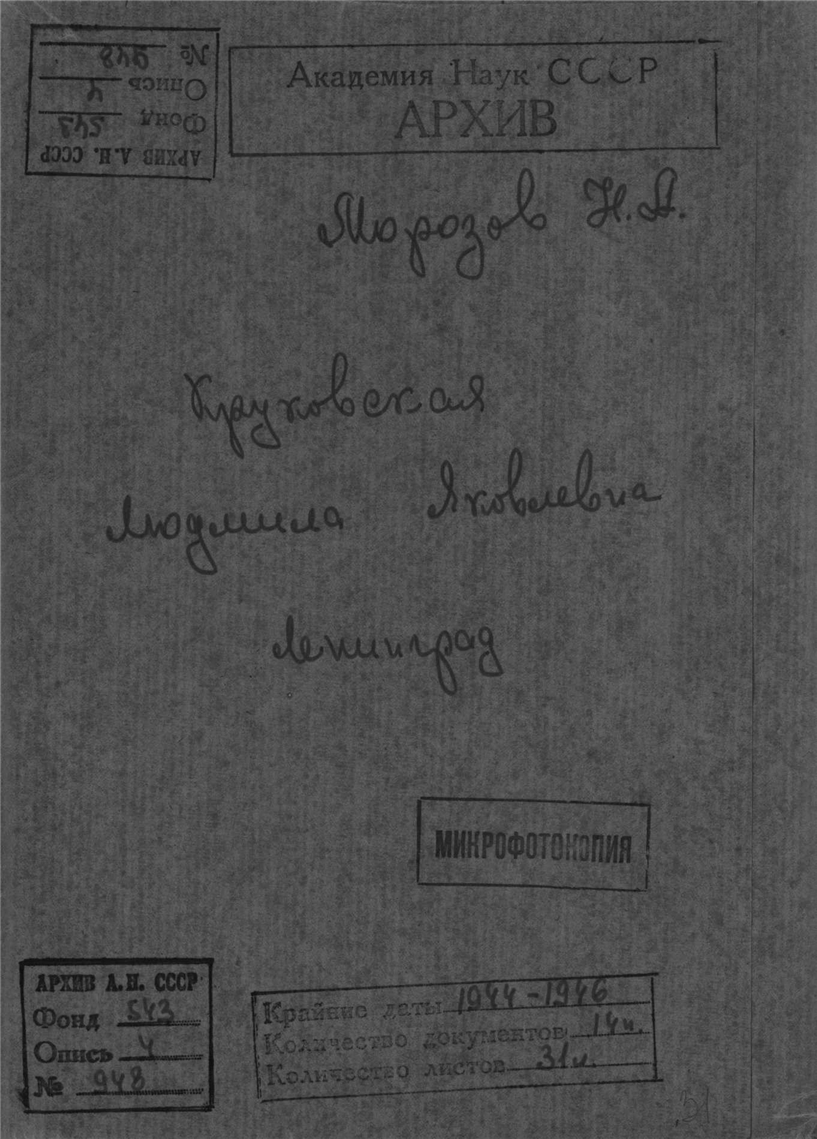 № 948
Опись 4
Фонд 543
АРХИВ А.Н. СССР
Академия Наук СССР
АРХИВ
Морозов Н.А.
Круковская
Людмила Яковлевна
Ленинград
МИКРОФОТОКОПИЯ
АРХИВ А.Н. СССР
Фонд 543
Опись 4
№ 948
Крайние даты 1944-1946
Количество документов 14 н.
Количество листов 31 л.